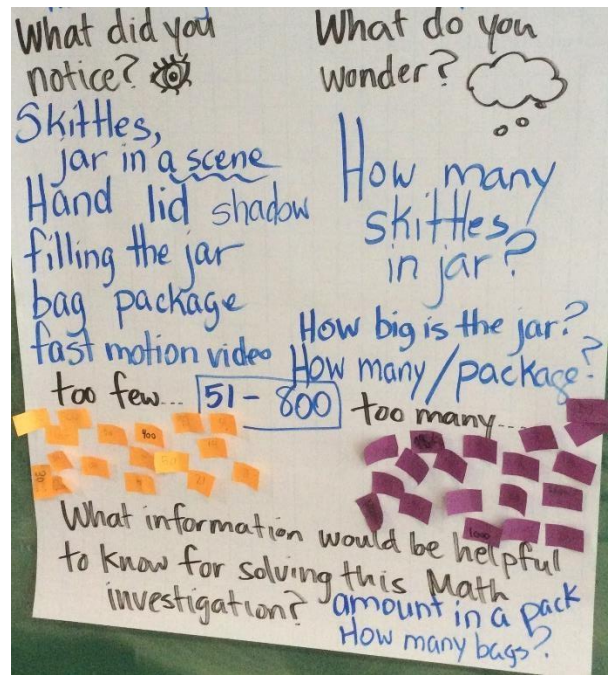 What did you
notice?
Skittles,
jar in a scene
Hand lid shadow
filling the jar
bag package
fast motion video
What do you
wonder?
How many
skittles
in jar?
How big is the jar?
How many/package?
too few... 51 - 800 too many...
400
1000
What information would be helpful
to know for solving this Math
investigation?
amount in a pack
How many bags?